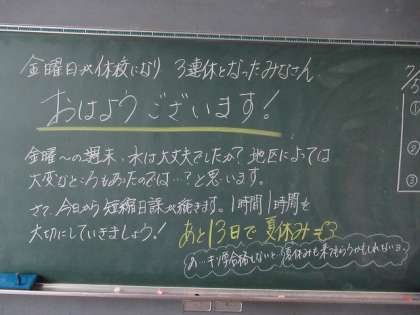 金曜日が休校になり 3連休となったみなさん
おはようございます!
金曜〜の週末、水は大丈夫でしたか? 地区によっては
大変なところもあったのでは…?と思います。
さて、今日から短縮日課が続きます。1時間1時間を
大切にしていきましょう!
あと13日で夏休み
夏休みも来てもらうかもしれないョ。
7/
①
②
③